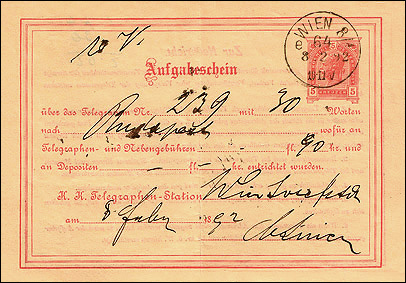 WIEN 8/1
64
8 2 92
Aufgabeschein
5 5
über das Telegramm Nr. 239 mit 30 Worten
nach Budapest wofür an
Telegraphen- und Nebengebühren fl. 90 kr. und
an Depositen – fl. – kr. entrichtet wurden.
K. K. Telegraphen-Station Wien
am 8 Feber 1892